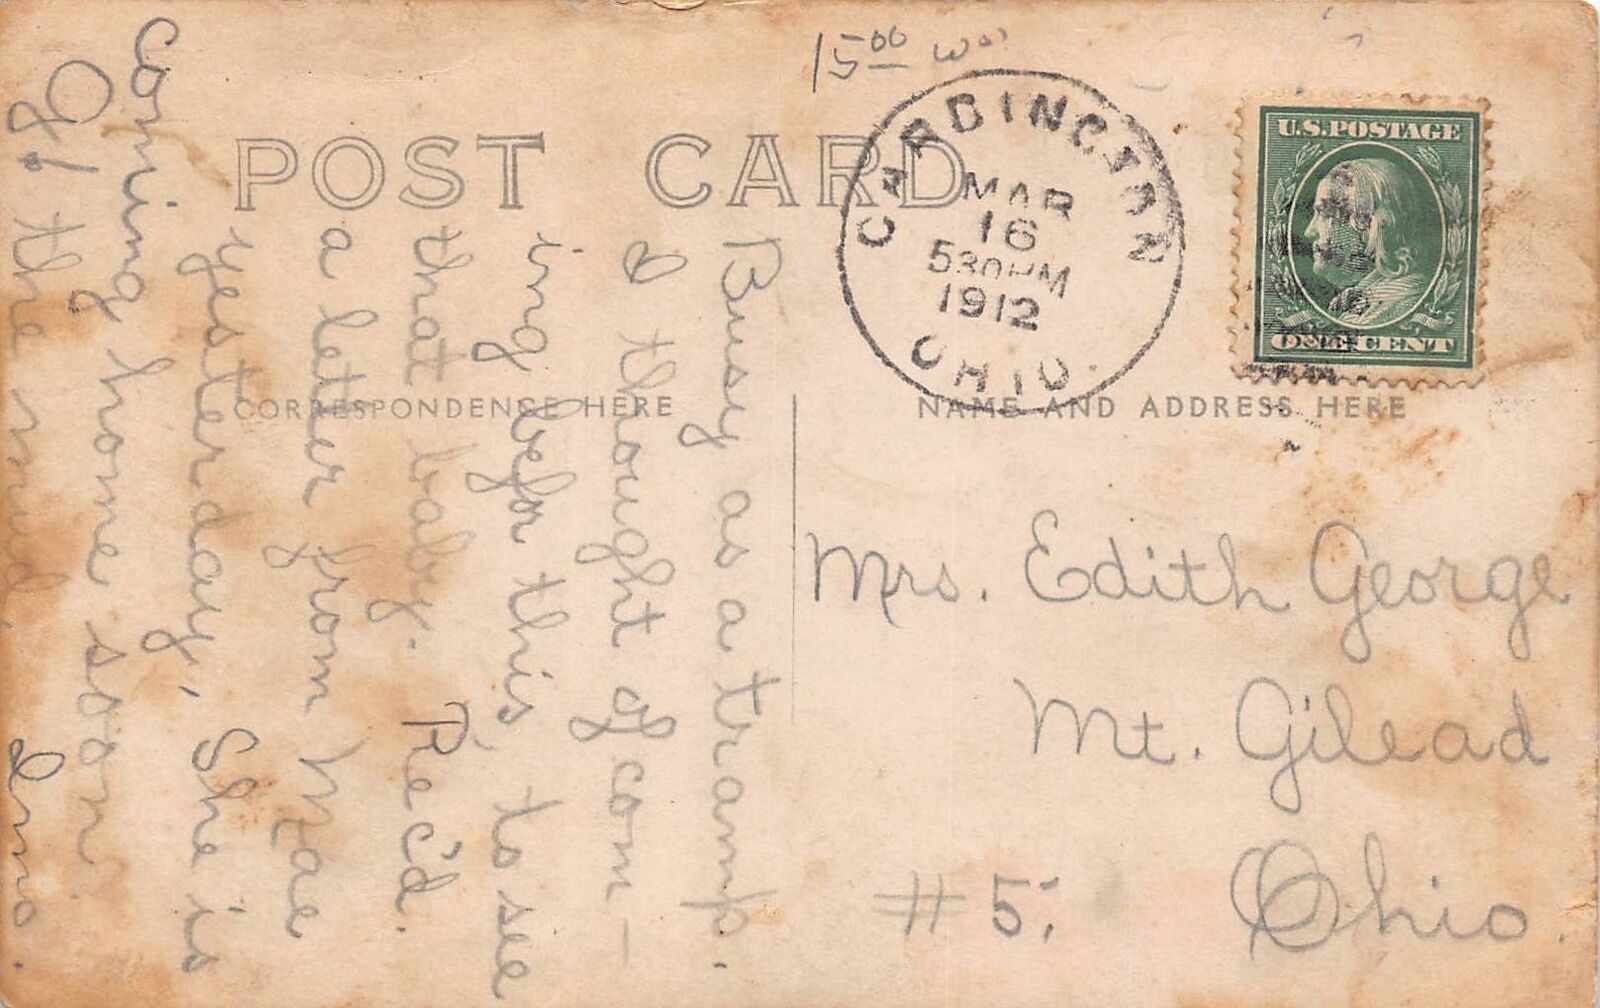 15.00
POST CARD
CARDINGTON
MAR
16
530PM
1912
OHIO.
U.S.POSTAGE
ONE CENT
CORRESPONDENCE HERE
NAME AND ADDRESS HERE
Busy as a tramp.
I thought of com-
ing befor this, to see
that baby. Rec'd.
a letter from Mae
yesterday, She is
coming home soon.
O! the mud.
Mrs. Edith George
Mt. Gilead
#5. Ohio.